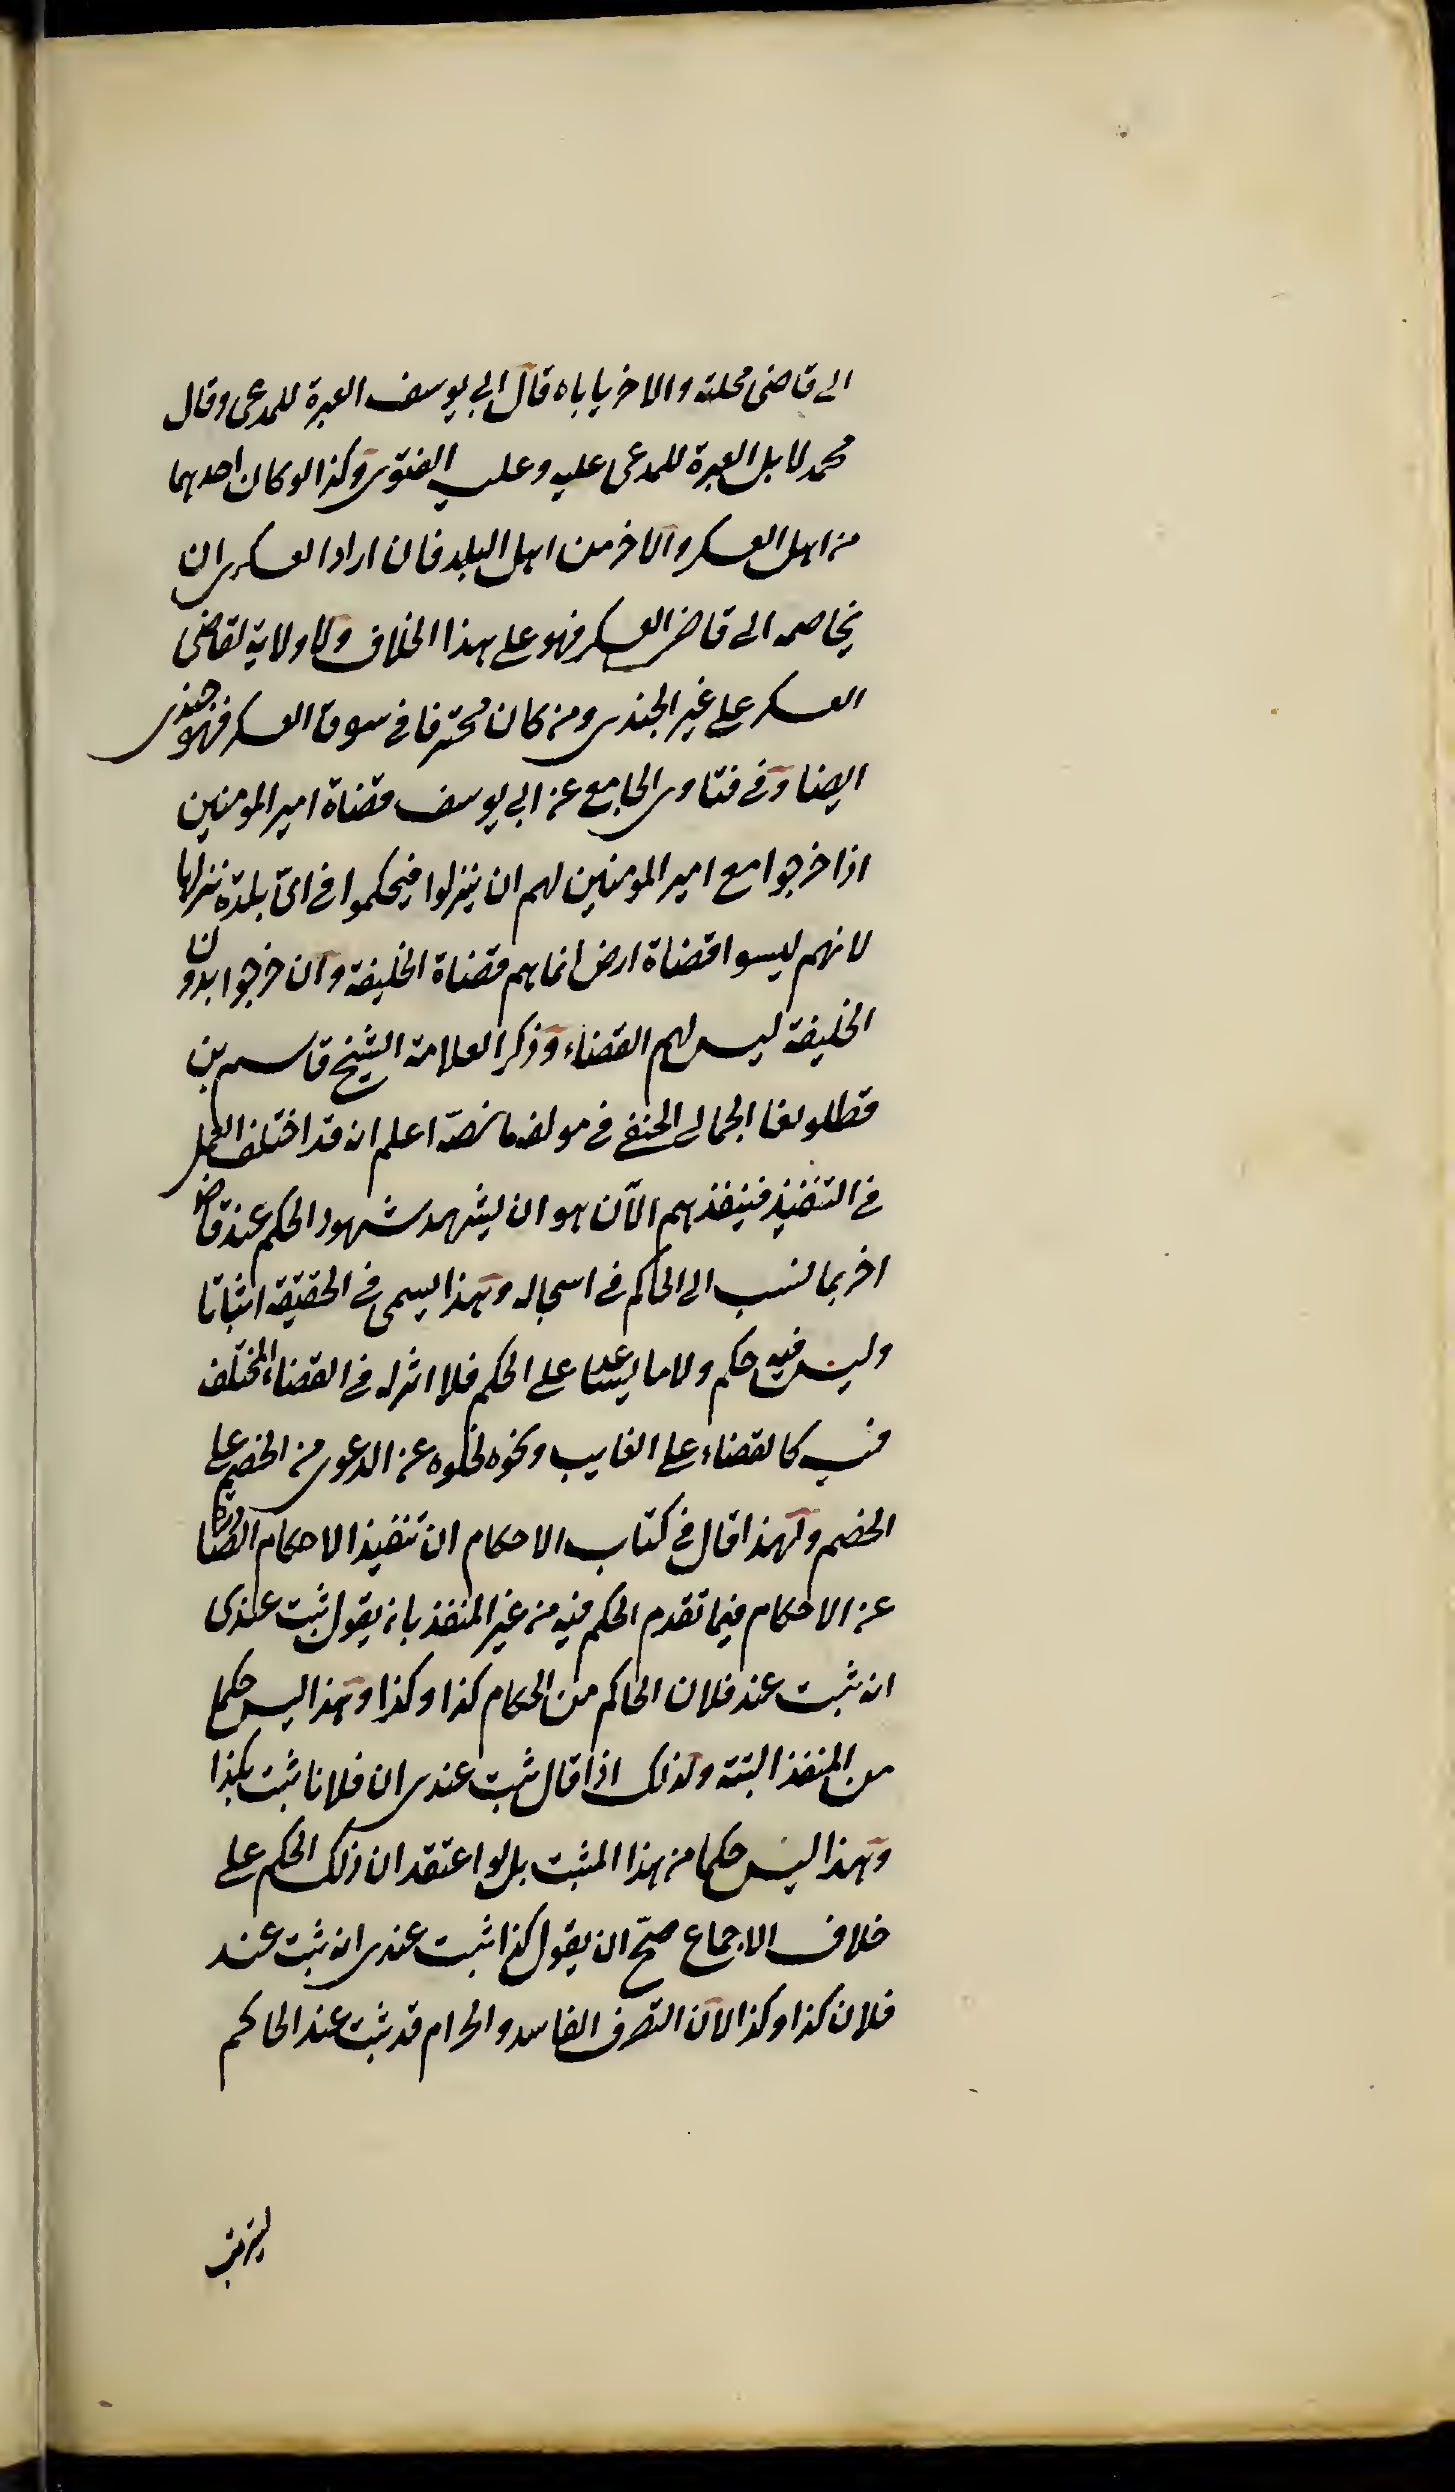 الى قاضى محلته والاخر ياباه قال ابى يوسف العبرة للمدعى وقال
محمد لا بل العبرة للمدعى عليه وعليه الفتوى وكذا لو كان احدهما
من اهل العسكر والاخر من اهل البلد فان اراد العسكرى ان
يخاصمه الى قاضى العسكر فهو على هذا الخلاف ولا ولاية لقاضى
العسكر على غير الجندى ومن كان محترفا فى سوق العسكر فهو جندى
ايضا وفى فتاوى الجامع عن ابى يوسف قضاة امير المومنين
اذا خرجوا مع امير المومنين لهم ان ينزلوا فيحكموا فى اىّ بلدة نزلها
لانهم ليسوا قضاة ارض انما هم قضاة الخليفة وان خرجوا بدون
الخليفة ليس لهم القضاء وذكر العلامة الشيخ قاسم بن
قطلوبغا الجمالى الحنفى فى مولفه ما نصّه اعلم انه قد اختلف العمل
فى التنفيذ فتنفذهم الآن هو ان يشهد شهود الحكم عند قاض
اخر بما نسب الى الحاكم فى اسجاله وهذا يسمى فى الحقيقة اثباتا
وليس فيه حكم ولا ما يساعد على الحكم فلا اثر له فى القضاء المختلف
فيه كالقضاء على الغايب ونحوه لخلوه عن الدعوى من الخصم على
الخصم ولهذا قال فى كتاب الاحكام ان تنفيذ الاحكام الصادرة
عن الاحكام فيما تقدم الحكم فيه من غير المنفذ بان يقول ثبت عندى
انه ثبت عند فلان الحاكم من الحكام كذا وكذا وهذا ليس حكما
من المنفذ البتة وكذلك اذا قال ثبت عندى ان فلانا ثبت بكذا
وهذا ليس حكما من هذا المثبت بل لو اعتقد ان ذلك الحكم على
خلاف الاجماع صحّ ان يقول كذا ثبت عندى انه ثبت عند
فلان كذا وكذا لان التصرف الفاسد والحرام قد ثبت عند الحاكم